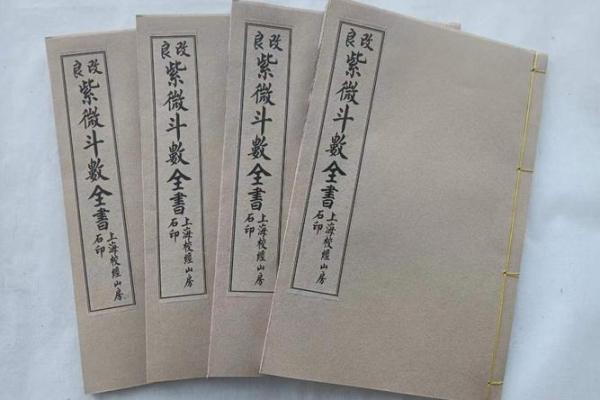 改良
紫微斗數全書
上海校經山房
石印
改良
紫微斗數全書
上海校經山房
石印
改良
紫微斗數全書
上海校經山房
石印
改良
紫微斗數全書
上海校經山房
石印